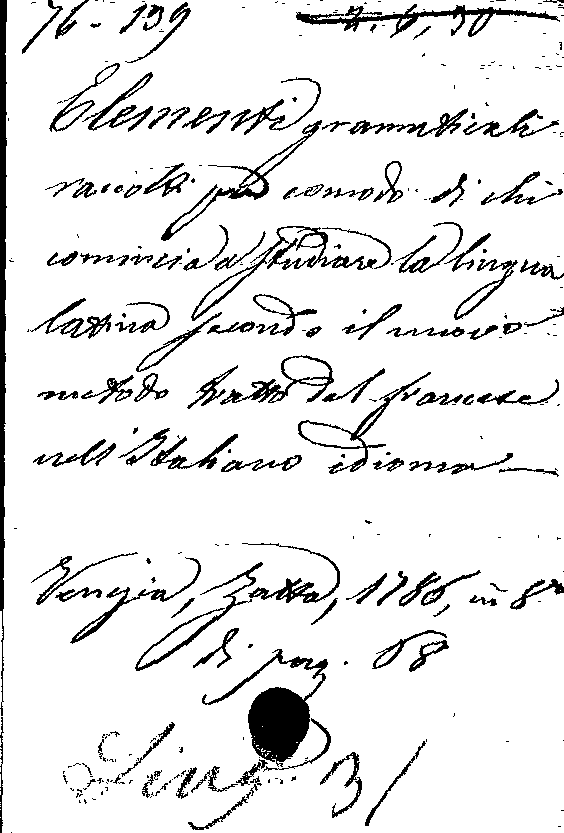 76 - 139 2. 6, 30
Elementi grammaticali
raccolti per comodo di chi
comincia a studiare la lingua
latina secondo il nuovo
metodo tratto dal francese
nell'Italiano idioma —
Venezia, Zatta, 1786, in 8º
di pag. 68
Ling. 31